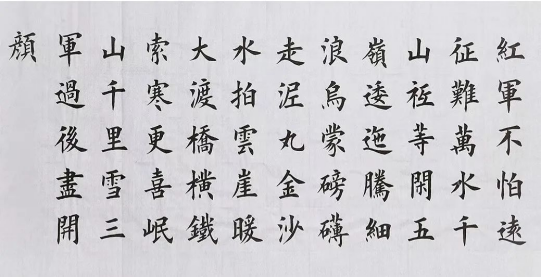 紅軍不怕遠
征難萬水千
山祗等閑五
嶺逶迤騰細
浪烏蒙磅礴
走泥丸金沙
水拍雲崖暖
大渡橋橫鐵
索寒更喜岷
山千里雪三
軍過後盡開
顏